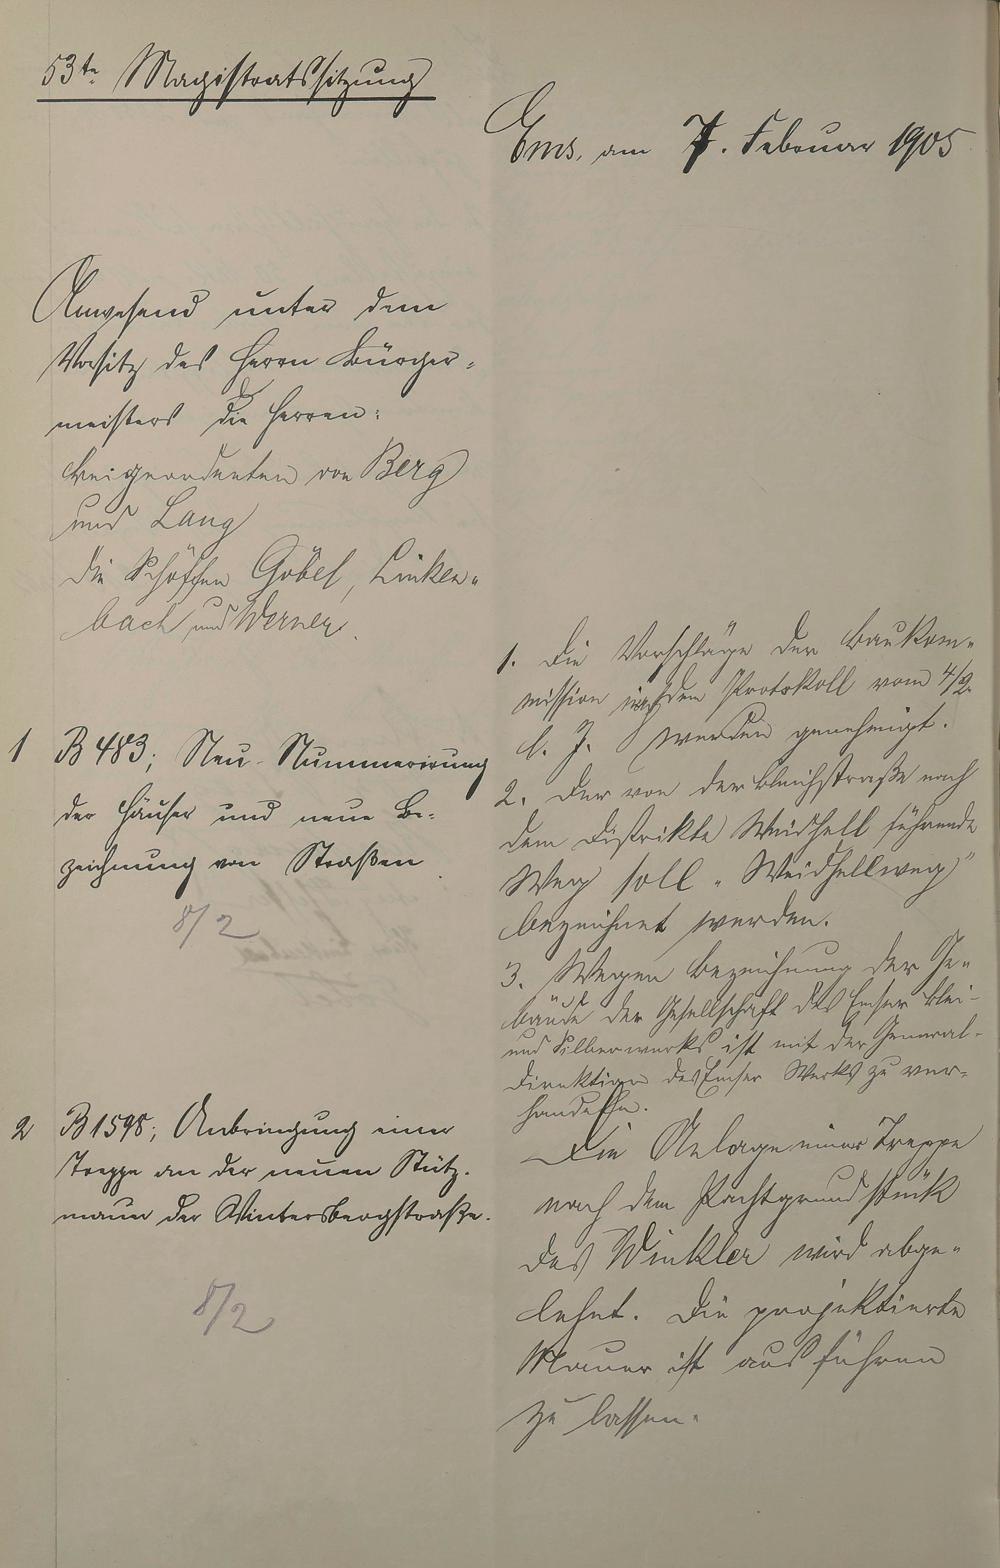 53te Magistratssitzung
Ems, am 7. Februar 1905
Anwesend unter dem
Vorsitz des Herrn Bürger-
meisters die Herren:
Beigeordneten von Berg
und Lang
die Schöffen Göbel, Linken-
bach und Werner.
1 B 483; Neu-Nummerirung
der Häuser und neue Be-
zeichnung von Straßen
8/2
1. Die Vorschläge der Baukom-
mission in dem Protokoll vom 4/2
l. J. werden genehmigt.
2. Der von der Bleichstraße nach
dem Distrikte Weidhell führende
Weg soll „Weidhellweg"
bezeichnet werden.
3. Wegen Bezeichnung der Ge-
bäude der Gesellschaft des Emser Blei-
und Silberwerks ist mit der General-
direktion des Emser Werks zu ver-
handeln.
2 B 1598; Anbringung einer
Treppe an der neuen Stütz-
mauer der Wintersbergstraße.
8/2
Die Anlage einer Treppe
nach dem Pachtgrundstück
des Winkler wird abge-
lehnt. Die projektierte
Mauer ist ausführen
zu lassen.